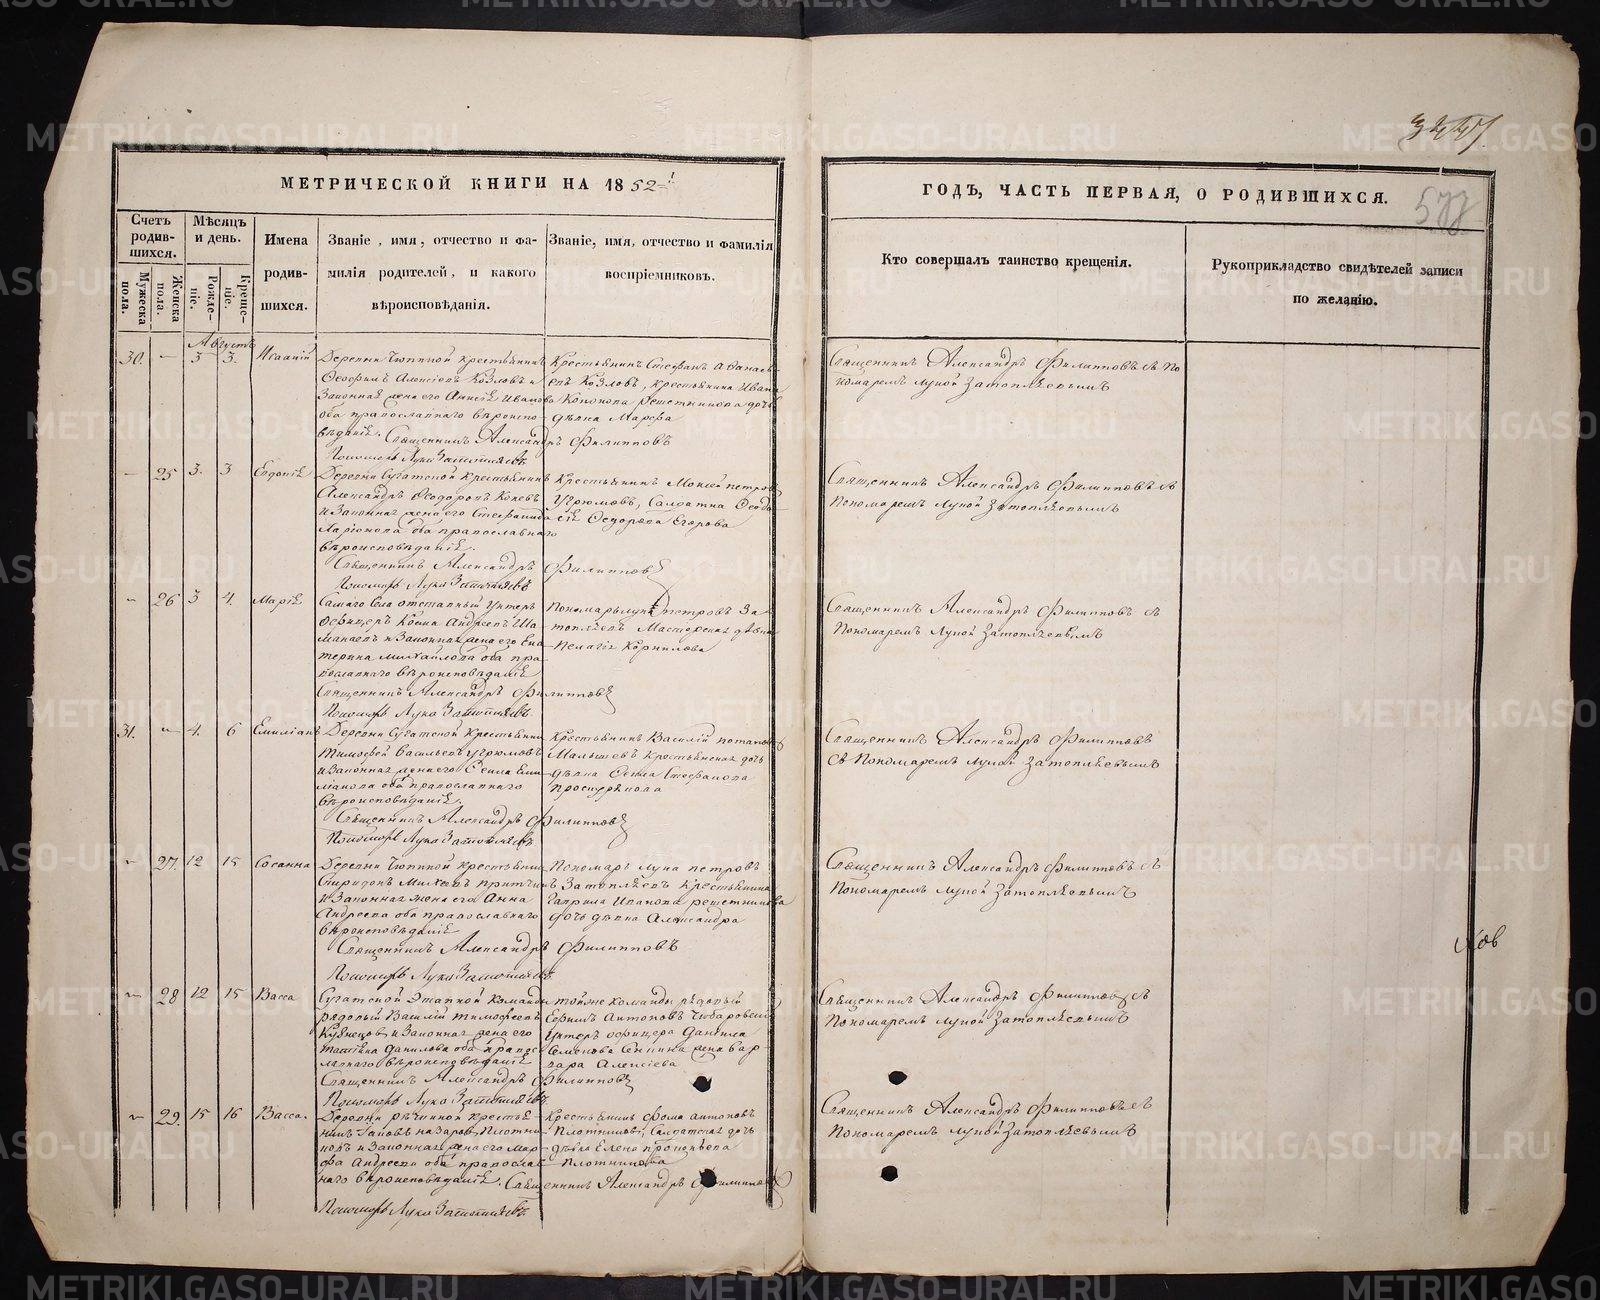 МЕТРИЧЕСКОЙ КНИГИ НА 1852
ГОДЪ, ЧАСТЬ ПЕРВАЯ, О РОДИВШИХСЯ.
577
Счетъ родившихся.
Мужеска пола.
Женска пола.
Мѣсяцъ и день.
Рожденіе.
Крещеніе.
Имена родившихся.
Званіе, имя, отчество и фамилія родителей, и какого вѣроисповѣданія.
Званіе, имя, отчество и фамилія воспріемниковъ.
Кто совершалъ таинство крещенія.
Рукоприкладство свидѣтелей записи по желанію.
Августъ
30. — 3 3. Исаакій
крестьянинъ
Ѳеофилъ Алексѣевъ Козловъ и
Законная жена его Анисія Иванова
оба православнаго вѣроиспо-
вѣданія. Священникъ Александръ Филипповъ
Пономарь Лука Затопляевъ
Крестьянинъ Стефанъ Аѳанась-
евъ Козловъ, крестьянина Ивана
Решетникова дочь
дѣвка Марѳа
Священникъ Александръ Филипповъ съ По
номаремъ Лукой Затопляевымъ
— 25 3. 3 Евдокія
Деревни Сугатской крестьянинъ
Александръ Ѳеодоровъ
и Законная жена его Стефанида
оба православнаго
вѣроисповѣданія.
Священникъ Александръ Филипповъ
Пономарь Лука Затопляевъ
Крестьянинъ Мокей Петровъ
Угрюмовъ, Салдатка Ѳеодо-
сія Ѳедорова Егорова
Священникъ Александръ Филипповъ съ
Пономаремъ Лукой Затопляевымъ
— 26 3 4. Марія
Самаго Села отставный Унтеръ
Офицеръ Козма Андреевъ Ша-
манаевъ и Законная жена его Ека-
терина Михайлова оба пра-
вославнаго вѣроисповѣданія
Священникъ Александръ Филипповъ
Пономарь Лука Затопляевъ
Пономарь Лука Петровъ За-
топляевъ Мастерская дѣвка
Пелагія Корнилова
Священникъ Александръ Филипповъ съ
Пономаремъ Лукой Затопляевымъ
31. — 4. 6 Емиліанъ
Деревни Сугатской Крестьянинъ
Тимофей Васильевъ Угрюмовъ
и Законная жена его
оба православнаго
вѣроисповѣданія.
Священникъ Александръ Филипповъ
Пономарь Лука Затопляевъ
Крестьянинъ Василій Потаповъ
Малышевъ Крестьянская дочь
дѣвка Стефанова
Проскурякова
Священникъ Александръ Филипповъ
съ Пономаремъ Лукой Затопляевымъ
— 27. 12 15 Сосанна
крестьянинъ
Спиридонъ Михеевъ
и Законная жена его Анна
Андреева оба православнаго
вѣроисповѣданія
Священникъ Александръ Филипповъ
Пономарь Лука Затопляевъ
Пономарь Лука Петровъ
Затопляевъ Крестьянина
Гаврила Иванова Решетникова
дочь дѣвка Александра
Священникъ Александръ Филипповъ съ
Пономаремъ Лукой Затопляевымъ
— 28 12 15 Васса
Сугатской Этапной Команды
рядовый Василій Тимофеевъ
Кузнецовъ и Законная жена его
Татіана Данилова оба правос-
лавнаго вѣроисповѣданія
Священникъ Александръ Филипповъ
Пономарь Лука Затопляевъ
той же команды рядовый
Ефимъ Антоновъ
Унтеръ офицера Данила
Семенова жена Вар-
вара Алексѣева
Священникъ Александръ Филипповъ съ
Пономаремъ Лукой Затопляевымъ
— 29. 15 16 Васса.
Деревни крестья-
нинъ Іаковъ Назаровъ Плотни-
ковъ и Законная жена его Мар-
фа Андреева оба православ-
наго вѣроисповѣданія. Священникъ Александръ Филипповъ
Пономарь Лука Затопляевъ
Крестьянинъ Фома Антоновъ
Плотниковъ, Салдатская дочь
дѣвка Елена Прокопьева
Плотникова
Священникъ Александръ Филипповъ съ
Пономаремъ Лукой Затопляевымъ
METRIKI.GASO-URAL.RU